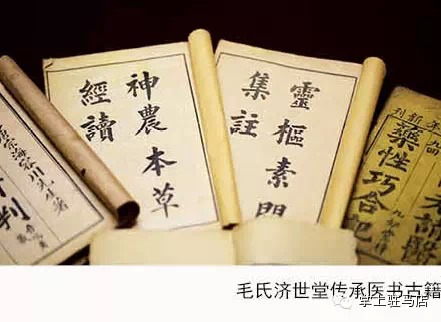 神農本草
經讀
靈樞素問
集註
藥性巧合記
毛氏济世堂传承医书古籍
掌上驻马店